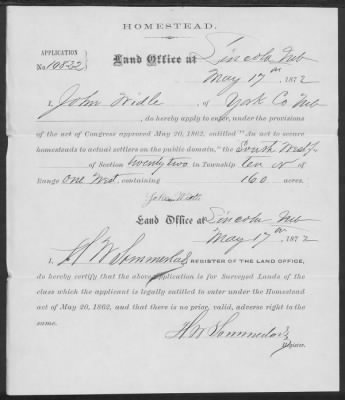 HOMESTEAD.
APPLICATION
No. 10832
Land Office at Lincoln Neb
May 17th 1872
I, John Widle, of York Co Neb
, do hereby apply to enter, under the provisions
of the act of Congress approved May 20, 1862, entitled "An act to secure
homesteads to actual settlers on the public domain," the South West 1/4
of Section twenty two in Township ten N of
Range One West, containing 160 acres.
John
Land Office at Lincoln Neb
May 17th 1872
I, H W Sommerlad, REGISTER OF THE LAND OFFICE,
do hereby certify that the above application is for Surveyed Lands of the
class which the applicant is legally entitled to enter under the Homestead
act of May 20, 1862, and that there is no prior, valid, adverse right to the
same.
H W Sommerlad
Register.